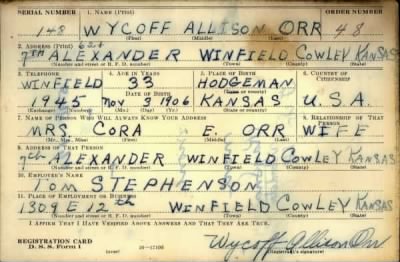 SERIAL NUMBER 1. NAME (Print) ORDER NUMBER
148 WYCOFF ALLISON ORR 48
(First) (Middle) (Last)
2. ADDRESS (Print)
7th ALEXANDER WINFIELD COWLEY KANSAS
(Number and street or R. F. D. number) (Town) (County) (State)
3. TELEPHONE 4. AGE IN YEARS 5. PLACE OF BIRTH 6. COUNTRY OF CITIZENSHIP
WINFIELD 33 HODGEMAN
(Town) (County)
1945 Nov 3 1906 KANSAS U.S.A.
(Mo.) (Day) (Yr.) (State or country)
7. NAME OF PERSON WHO WILL ALWAYS KNOW YOUR ADDRESS 8. RELATIONSHIP OF THAT PERSON
MRS. CORA E. ORR WIFE
(Mr., Mrs., Miss) (First) (Middle) (Last)
9. ADDRESS OF THAT PERSON
7th ALEXANDER WINFIELD COWLEY KANSAS
(Number and street or R. F. D. number) (Town) (County) (State)
10. EMPLOYER'S NAME
TOM STEPHENSON
11. PLACE OF EMPLOYMENT OR BUSINESS
1309 E 12th WINFIELD COWLEY KANSAS
(Number and street or R. F. D. number) (Town) (County) (State)
I AFFIRM THAT I HAVE VERIFIED ABOVE ANSWERS AND THAT THEY ARE TRUE.
REGISTRATION CARD
D. S. S. Form 1 16—17105 Wycoff Allison Orr
(Registrant's signature)